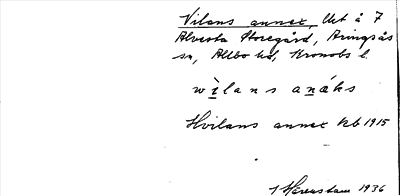 Vilans annex, Lht å 7
Alvesta Storegård, Aringsås
sn, Allbo hd, Kronobs l.
wìlans anáks
Hvilans annex kb 1915
1936